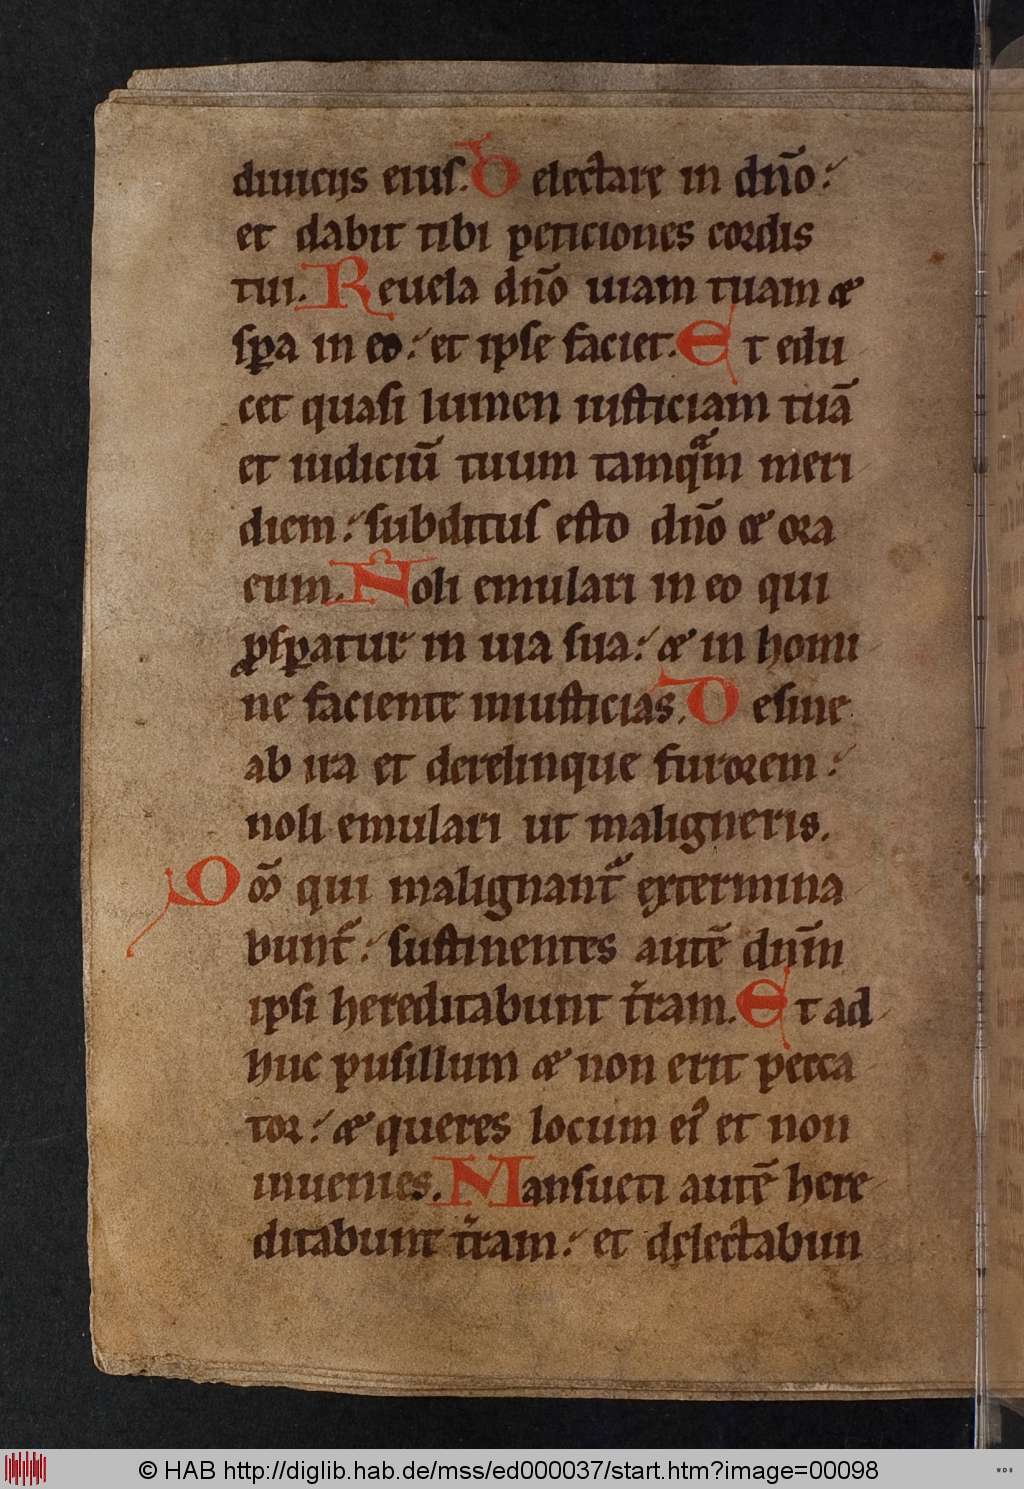 diuicijs eius. Delectare in dn̄o:
et dabit tibi peticiones cordis
tui. Reuela dn̄o uiam tuam &
sꝑa in eo: et ipse faciet. Et edu
cet quasi lumen iusticiam tuā
et iudiciū tuum tamqᵃm meri
diem: subditus esto dn̄o & ora
eum. Noli emulari in eo qui
ꝓsꝑatur in uia sua: & in homi
ne facient iniusticias. Desine
ab ira et derelinque furorem:
noli emulari ut maligneris.
Qm̄ qui malignant᷑ extermina
bunt᷑: sustinentes autē dnm̄
ipsi hereditabunt t̄ram. Et ad
huc pusillum & non erit pecca
tor: & queres locum eiꝰ et non
inuenies. Mansueti autē here
ditabunt t̄ram: et delectabun
© HAB http://diglib.hab.de/mss/ed000037/start.htm?image=00098